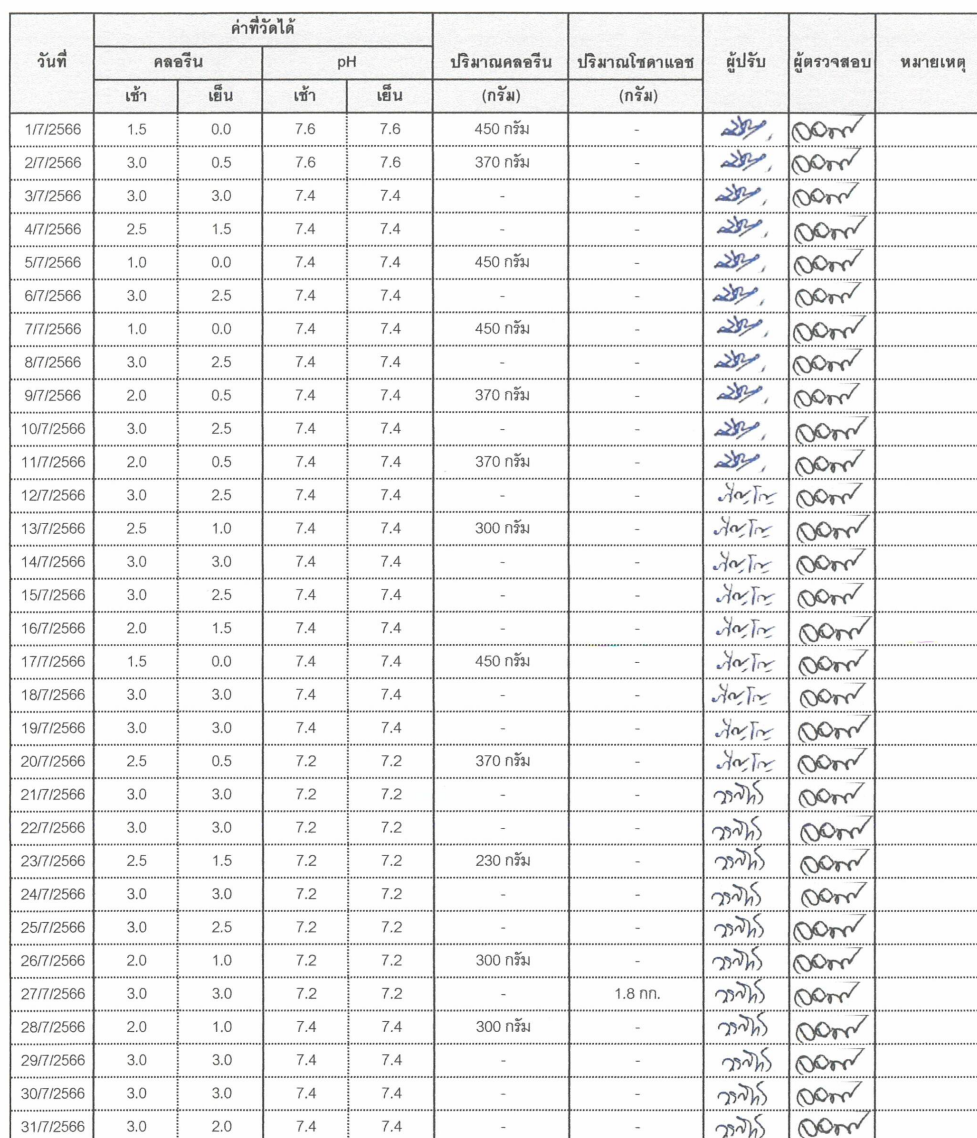 ค่าที่วัดได้
วันที่ คลอรีน pH ปริมาณคลอรีน ปริมาณโซดาแอช ผู้ปรับ ผู้ตรวจสอบ หมายเหตุ
เช้า เย็น เช้า เย็น (กรัม) (กรัม)
1/7/2566 1.5 0.0 7.6 7.6 450 กรัม -
2/7/2566 3.0 0.5 7.6 7.6 370 กรัม -
3/7/2566 3.0 3.0 7.4 7.4 - -
4/7/2566 2.5 1.5 7.4 7.4 - -
5/7/2566 1.0 0.0 7.4 7.4 450 กรัม -
6/7/2566 3.0 2.5 7.4 7.4 - -
7/7/2566 1.0 0.0 7.4 7.4 450 กรัม -
8/7/2566 3.0 2.5 7.4 7.4 - -
9/7/2566 2.0 0.5 7.4 7.4 370 กรัม -
10/7/2566 3.0 2.5 7.4 7.4 - -
11/7/2566 2.0 0.5 7.4 7.4 370 กรัม -
12/7/2566 3.0 2.5 7.4 7.4 - -
13/7/2566 2.5 1.0 7.4 7.4 300 กรัม -
14/7/2566 3.0 3.0 7.4 7.4 - -
15/7/2566 3.0 2.5 7.4 7.4 - -
16/7/2566 2.0 1.5 7.4 7.4 - -
17/7/2566 1.5 0.0 7.4 7.4 450 กรัม -
18/7/2566 3.0 3.0 7.4 7.4 - -
19/7/2566 3.0 3.0 7.4 7.4 - -
20/7/2566 2.5 0.5 7.2 7.2 370 กรัม -
21/7/2566 3.0 3.0 7.2 7.2 - -
22/7/2566 3.0 3.0 7.2 7.2 - -
23/7/2566 2.5 1.5 7.2 7.2 230 กรัม -
24/7/2566 3.0 3.0 7.2 7.2 - -
25/7/2566 3.0 2.5 7.2 7.2 - -
26/7/2566 2.0 1.0 7.2 7.2 300 กรัม -
27/7/2566 3.0 3.0 7.2 7.2 - 1.8 กก.
28/7/2566 2.0 1.0 7.4 7.4 300 กรัม -
29/7/2566 3.0 3.0 7.4 7.4 - -
30/7/2566 3.0 3.0 7.4 7.4 - -
31/7/2566 3.0 2.0 7.4 7.4 - -